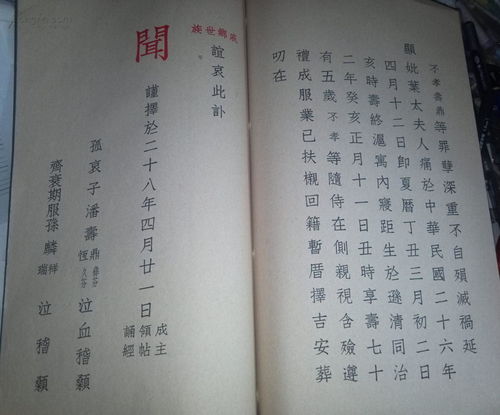 不孝壽鼎等罪孽深重不自殞滅禍延
顯妣葉太夫人痛於中華民國二十六年
四月十二日即夏曆丁丑三月初二日
亥時壽終滬寓內寢距生於遜清同治
二年癸亥正月十一日丑時享壽七十
有五歲不孝等隨侍在側親視含殮遵
禮成服業已扶櫬回籍暫厝擇吉安葬
叨在
戚鄉世族
誼哀此訃
聞
謹擇於二十八年四月廿一日
成主
領帖
誦經
孤哀子潘壽鼎彝芬恆久芬泣血稽顙
齊衰期服孫麟祥瑞泣稽顙